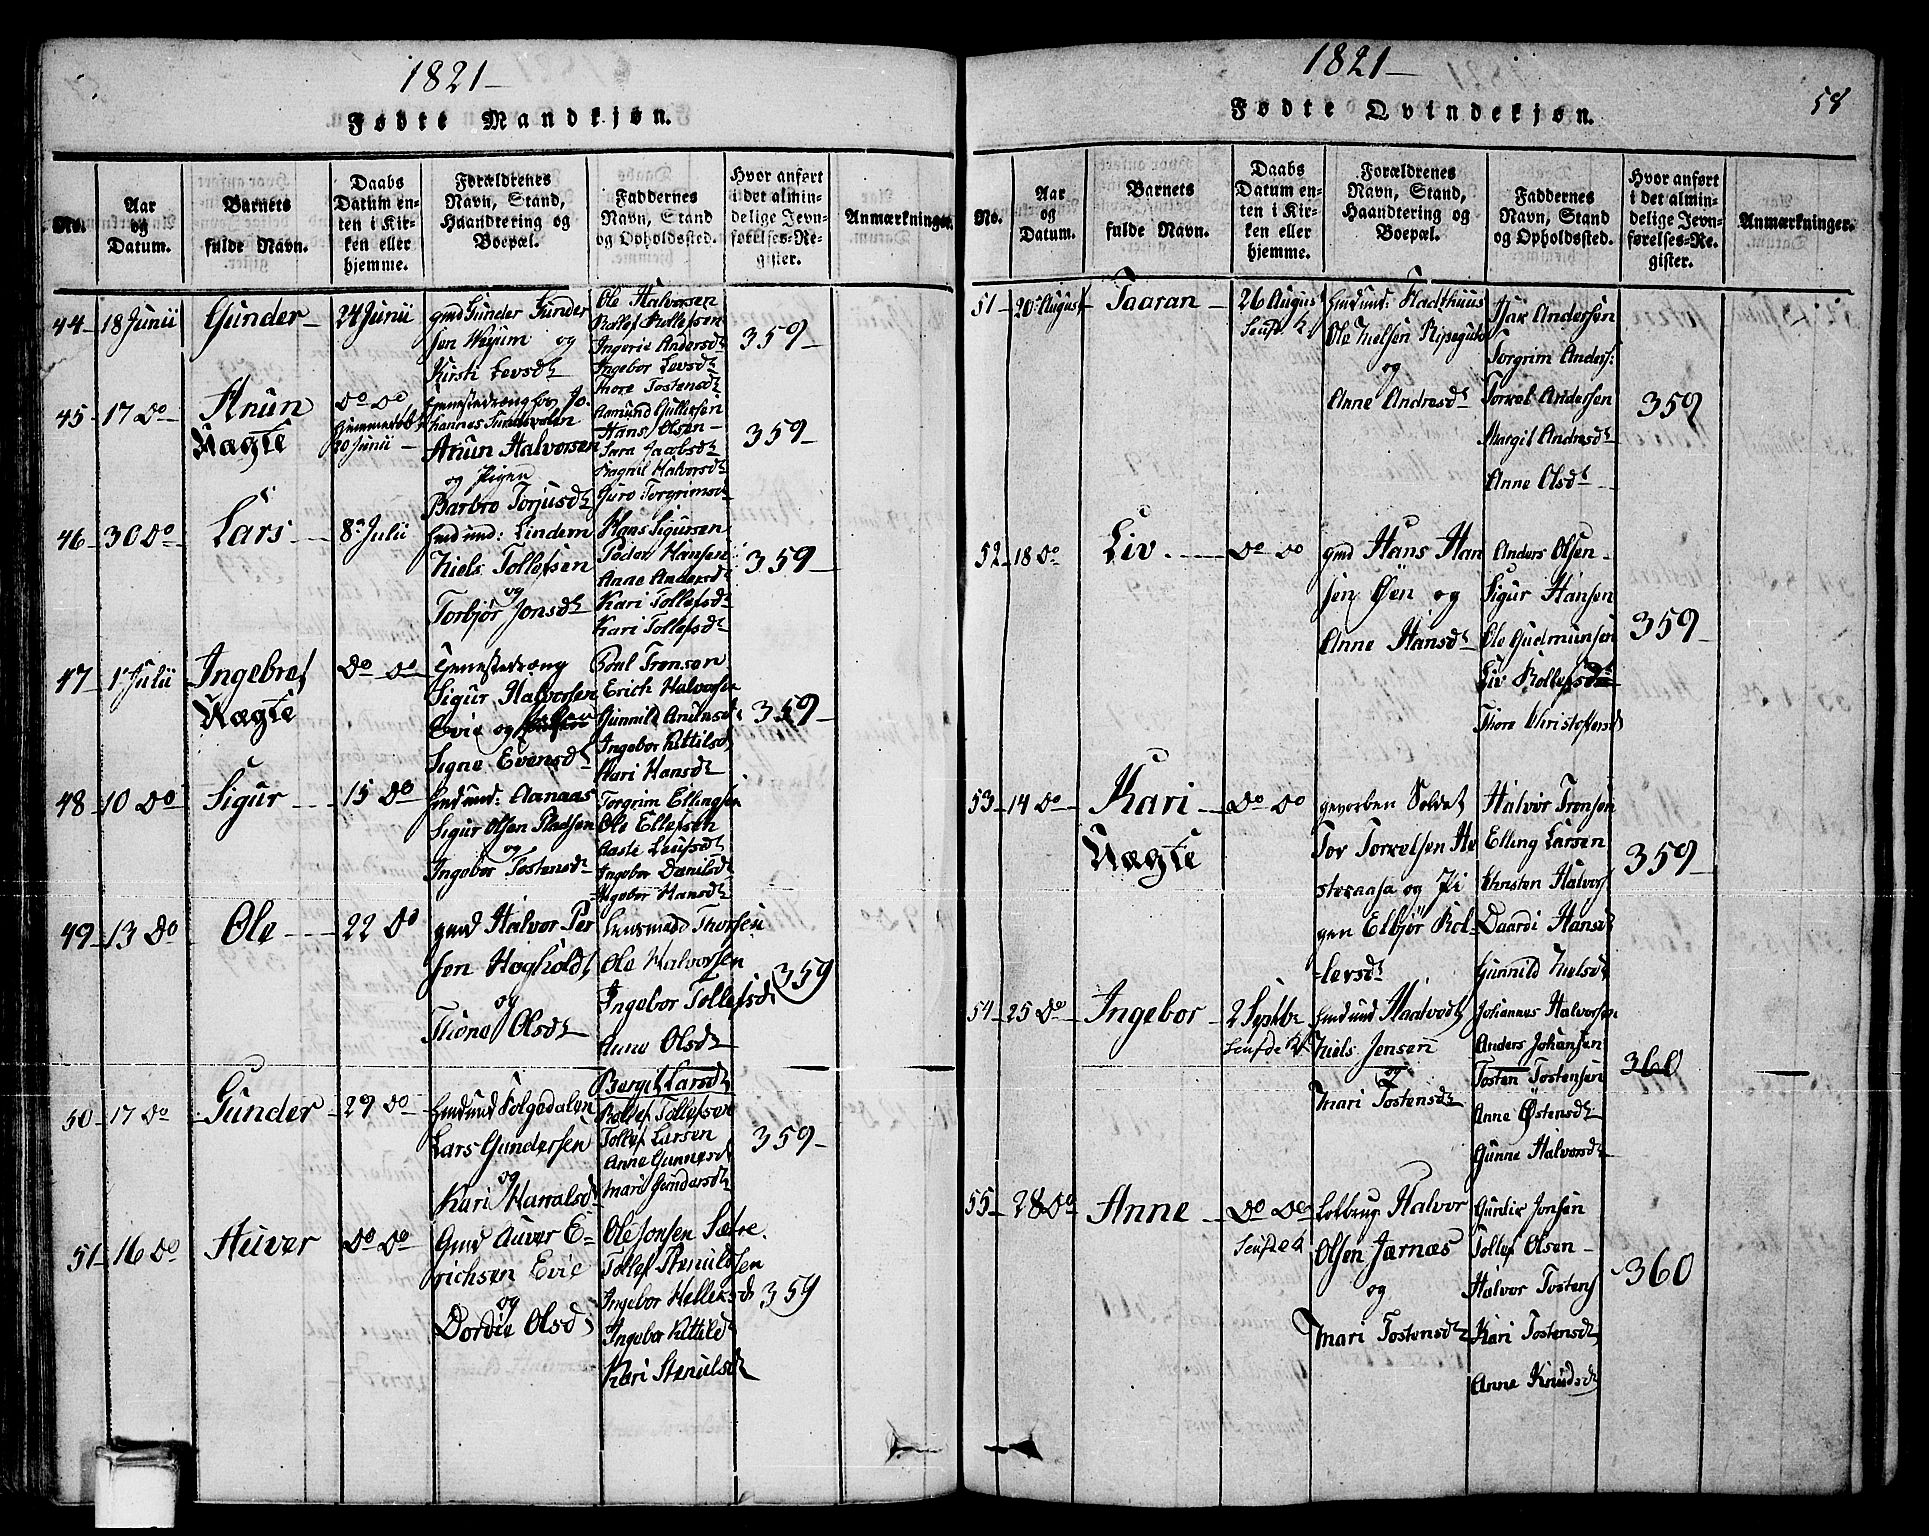 1821
Fødte Mandkjøn.
No.
Aar og Datum.
Barnets fulde Navn.
Daabs Datum enten i Kirken eller hjemme.
Forældrenes Navn, Stand, Haandtering og Boepæl.
Faddernes Navn, Stand og Opholdssted.
Hvor anført i det almindelige Jevnførelses-Register.
Anmærkninger.
44 18 Junii Gunder 24 Junii
gmd Gunder Gunder
sen og
Kirsti Levsdt
Ole Halvorsen
Rollef Rollefsen
Ingerie Andersdt
Ingebor Levsdt
Thore Tostensdt
359
45 17 do Anun
Uægte
do do
20 Junii
hannes Sundsvalen
Anun Halvorsen
og Pigen
Barbro Torjusdt
Aamund Gullefsen
Hans Olsen
Sara Jacobsdt
Halvorsdt
Guro Torgrimsdt
359
46 30 do Lars 8 Julii
Lindem
Niels Tollefsen
og
Torbjør Jonsdt
Hans Sigursen
Peder Hansen
Anne Andersdt
Kari Tollefsdt
Kari Tollefsdt
359
47 1 Julii Ingebret
Uægte
do do
Tjenestedræng
Sigur Halvorsen
Evie og
Signe Evensdt
Poul Tronsen
Erich Halvorsen
Gunnild Anunsdt
Ingebor Kittilsdt
Kari Hansdt
359
48 10 do Sigur 15 do
Aanaas
Sigur Olsen Pladsen
og
Ingebor Tostensdt
Torgrim Ellingsen
Ole Ellefsen
Aaste Leufsdt
Ingebor Danilsdt
Ingebor Hansdt
359
49 13 do Ole 22 do
gmd Halvor Per
sen Høgholdt
og
Thone Olsdt
Lensmand Thorsen
Ole Halvorsen
Ingebor Tollefsdt
Anne Olsdt
Bergit Larsdt
359
50 17 do Gunder 29 do
Lars Gundersen
og
Kari Haralsdt
Rollef Tollefsen
Tollef Larsen
Anne Gunnersdt
Mari Gundersdt
359
51 16 do Auver do do
Gmd Auver E
richsen Evie
og
Dordie Olsdt
Ole Jonsen Sætre
Tollef Stenulsen
Ingebor Helleksdt
Ingebor Kittilsdt
Kari Stenulsdt
359
1821
58
Fødte Qvindekjøn.
No.
Aar og Datum.
Barnets fulde Navn.
Daabs Datum enten i Kirken eller hjemme.
Forældrenes Navn, Stand, Haandtering og Boepæl.
Faddernes Navn, Stand og Opholdssted.
Hvor anført i det almindelige Jevnførelses-Register.
Anmærkninger.
51 20 August Taaran 26 August
Ole Nielsen
og
Anne Andresdt
Isak Andersen
Torgrim Anders:
Torkel Andersen
Margit Andresdt
Anne Olsdt
359
52 18 do Liv do do
gmd Hans Han
sen Øen og
Anne Hansdt
Anders Olsen
Sigur Hansen
Ole Gudmunsen
Liv Rollefsdt
Thore Christofersdt
359
53 14 do Kari
Uægte
do do
gevorben Soldat
Tor Torkelsen He
steraasa og Pi
gen Elbjør Rol
lefsdt
Halvor Tronsen
Elling Larsen
Christen Halvors
Daardi Hansdt
Gunnild Nielsdt
359
54 25 do Ingebor 2 Septbr
Niels Jensen
og
Mari Tostensdt
Johannes Halvorsen
Anders Johansen
Tosten Tostensen
Anne Østensdt
Gunne Halvorsdt
360
55 28 do Anne do do
Halvor
Olsen Jærnæs
og
Mari Tostensdt
Gunlir Jonsen
Tollef Olsen
Halvor Tostens
Kari Tostensdt
Anne Knudsdt
360